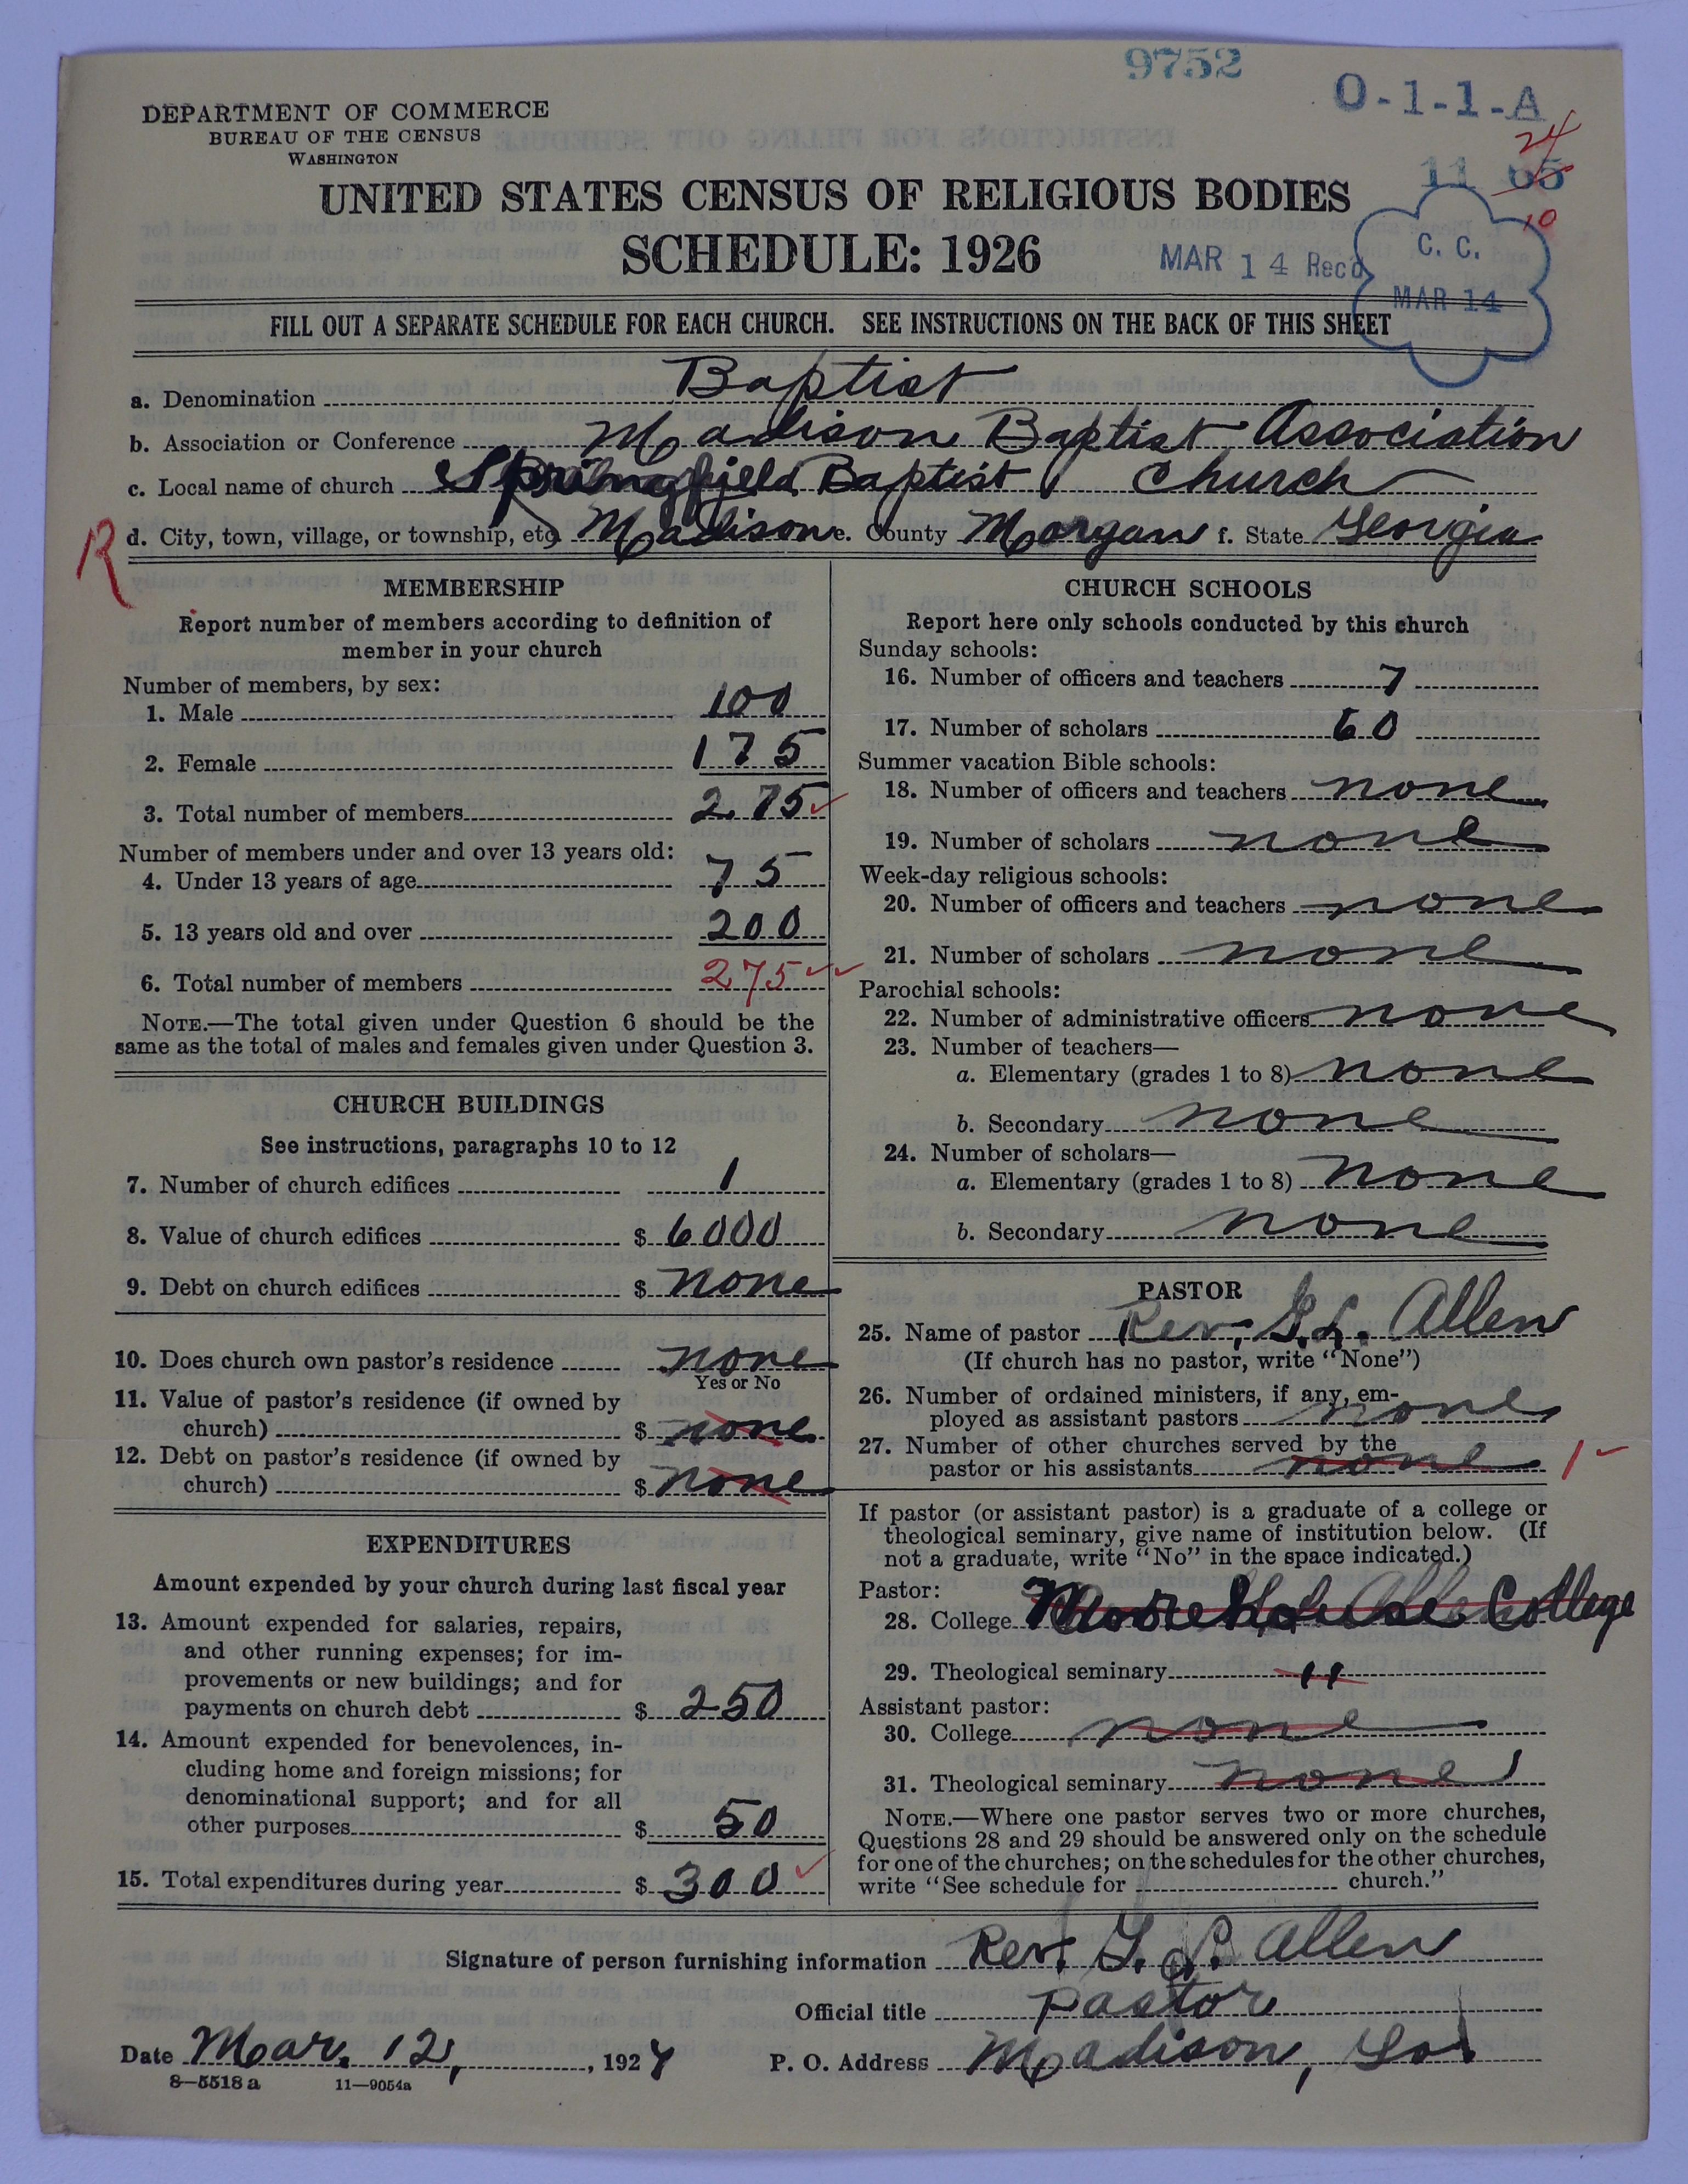 9752
O-1-1-A
DEPARTMENT OF COMMERCE
BUREAU OF THE CENSUS
WASHINGTON
24
11 65
10
UNITED STATES CENSUS OF RELIGIOUS BODIES
SCHEDULE: 1926
MAR 14 Recd
C. C.
MAR 14
FILL OUT A SEPARATE SCHEDULE FOR EACH CHURCH. SEE INSTRUCTIONS ON THE BACK OF THIS SHEET
a. Denomination Baptist
b. Association or Conference Madison Baptist Association
c. Local name of church Springfield Baptist Church
R
d. City, town, village, or township, etc. Madison e. County Morgan f. State Georgia
MEMBERSHIP
Report number of members according to definition of
member in your church
Number of members, by sex:
1. Male 100
2. Female 175
3. Total number of members 275
Number of members under and over 13 years old:
4. Under 13 years of age 75
5. 13 years old and over 200
6. Total number of members 275
NOTE.—The total given under Question 6 should be the
same as the total of males and females given under Question 3.
CHURCH BUILDINGS
See instructions, paragraphs 10 to 12
7. Number of church edifices 1
8. Value of church edifices $ 6000
9. Debt on church edifices $ none
10. Does church own pastor's residence none
Yes or No
11. Value of pastor's residence (if owned by
church) $ none
12. Debt on pastor's residence (if owned by
church) $ none
EXPENDITURES
Amount expended by your church during last fiscal year
13. Amount expended for salaries, repairs,
and other running expenses; for im-
provements or new buildings; and for
payments on church debt $ 250
14. Amount expended for benevolences, in-
cluding home and foreign missions; for
denominational support; and for all
other purposes $ 50
15. Total expenditures during year $ 300
CHURCH SCHOOLS
Report here only schools conducted by this church
Sunday schools:
16. Number of officers and teachers 7
17. Number of scholars 60
Summer vacation Bible schools:
18. Number of officers and teachers none
19. Number of scholars none
Week-day religious schools:
20. Number of officers and teachers none
21. Number of scholars none
Parochial schools:
22. Number of administrative officers none
23. Number of teachers—
a. Elementary (grades 1 to 8) none
b. Secondary none
24. Number of scholars—
a. Elementary (grades 1 to 8) none
b. Secondary none
PASTOR
25. Name of pastor Rev. Allen
(If church has no pastor, write "None")
26. Number of ordained ministers, if any, em-
ployed as assistant pastors none
27. Number of other churches served by the
pastor or his assistants none 1
If pastor (or assistant pastor) is a graduate of a college or
theological seminary, give name of institution below. (If
not a graduate, write "No" in the space indicated.)
Pastor:
28. College Morehouse College
29. Theological seminary 11
Assistant pastor:
30. College none
31. Theological seminary none
NOTE.—Where one pastor serves two or more churches,
Questions 28 and 29 should be answered only on the schedule
for one of the churches; on the schedules for the other churches,
write "See schedule for church."
Signature of person furnishing information Rev. Allen
Official title Pastor
Date Mar. 12, 1927 P. O. Address Madison, Ga
8—5518 a 11—9054a